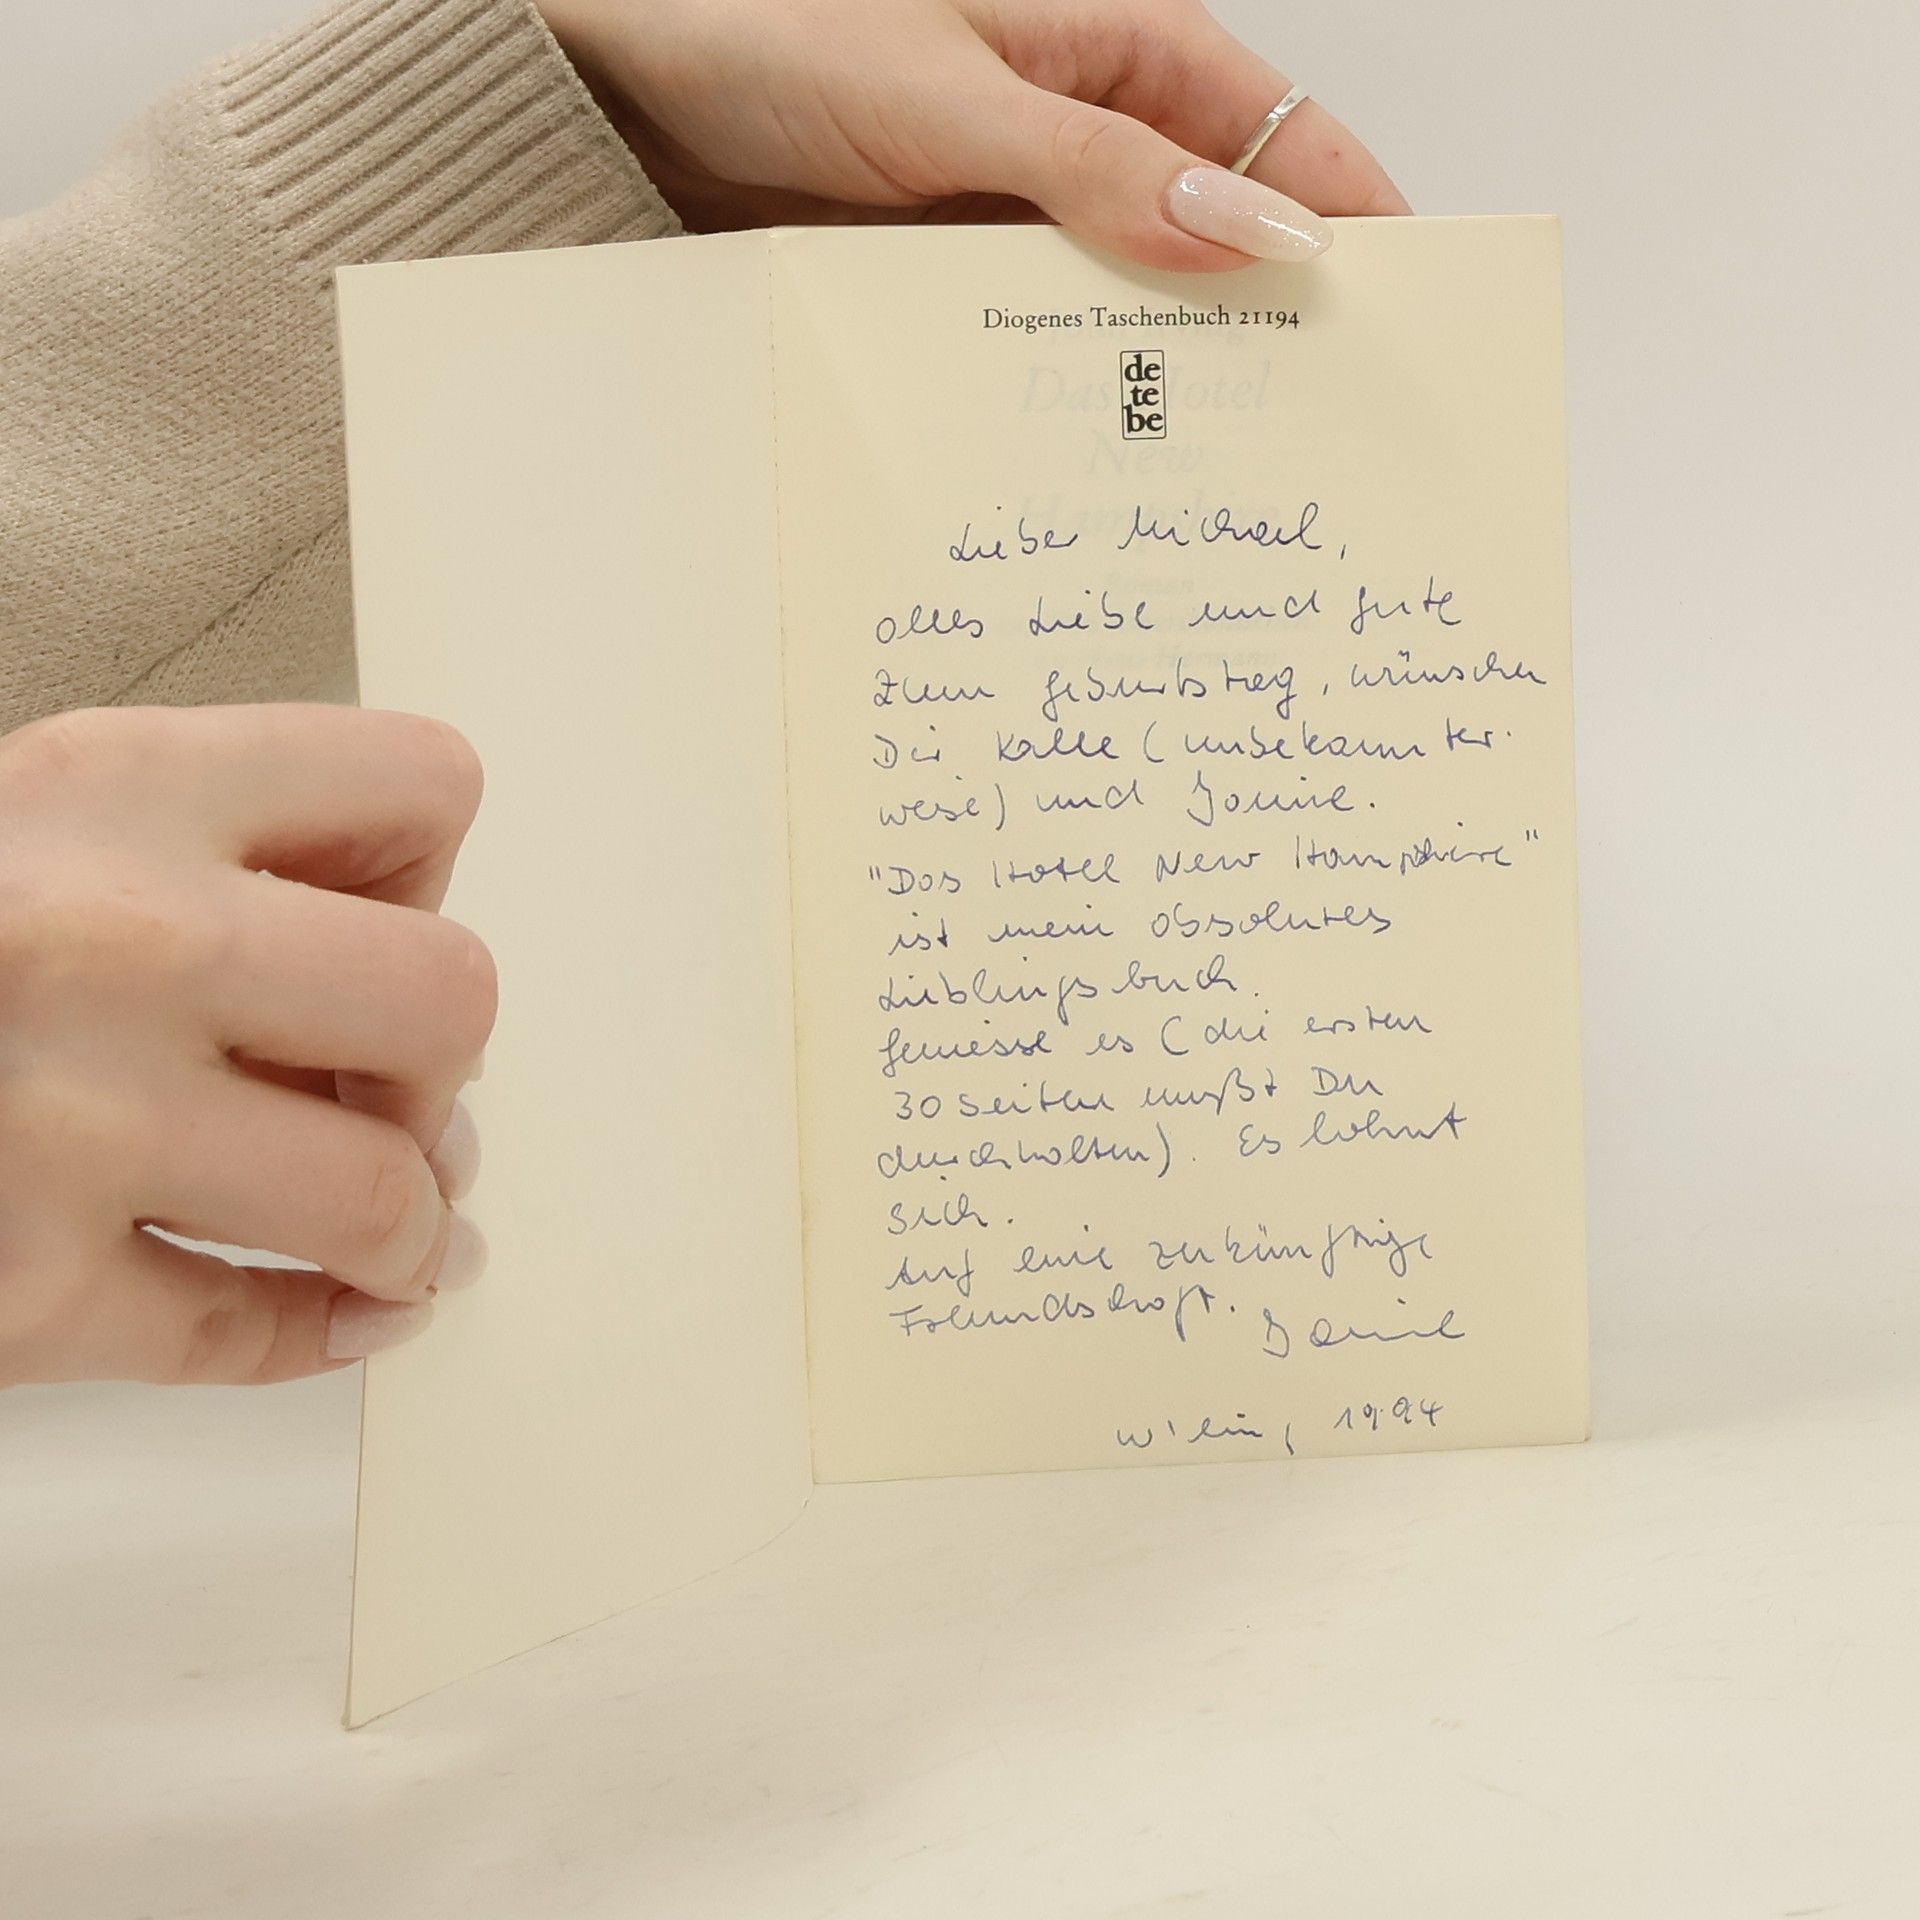 Diogenes Taschenbuch 21194
de
te
be
Lieber Michael,
alles Liebe und Gute
zum Geburtstag, wünschen
Dir Kalle (unbekannter-
weise) und
"Das Hotel New Hampshire"
ist mein absolutes
Lieblingsbuch.
Geniesse es (die ersten
30 Seiten mußt Du
durchhalten). Es lohnt
sich.
Auf eine zukünftige
Freundschaft.
W'lein, 1994